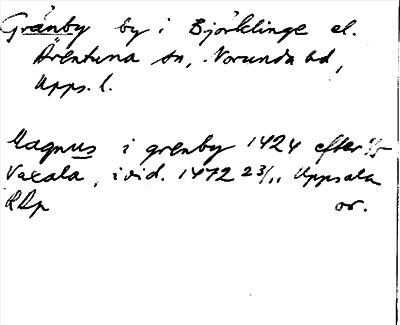 Gränby by i Björklinge el.
Ärentuna sn, Norunda hd,
Upps. l.
Magnus i grenby 1424 efter 4/5
Vaxala, i vid. 1472 23/11 Uppsala
RAp or.